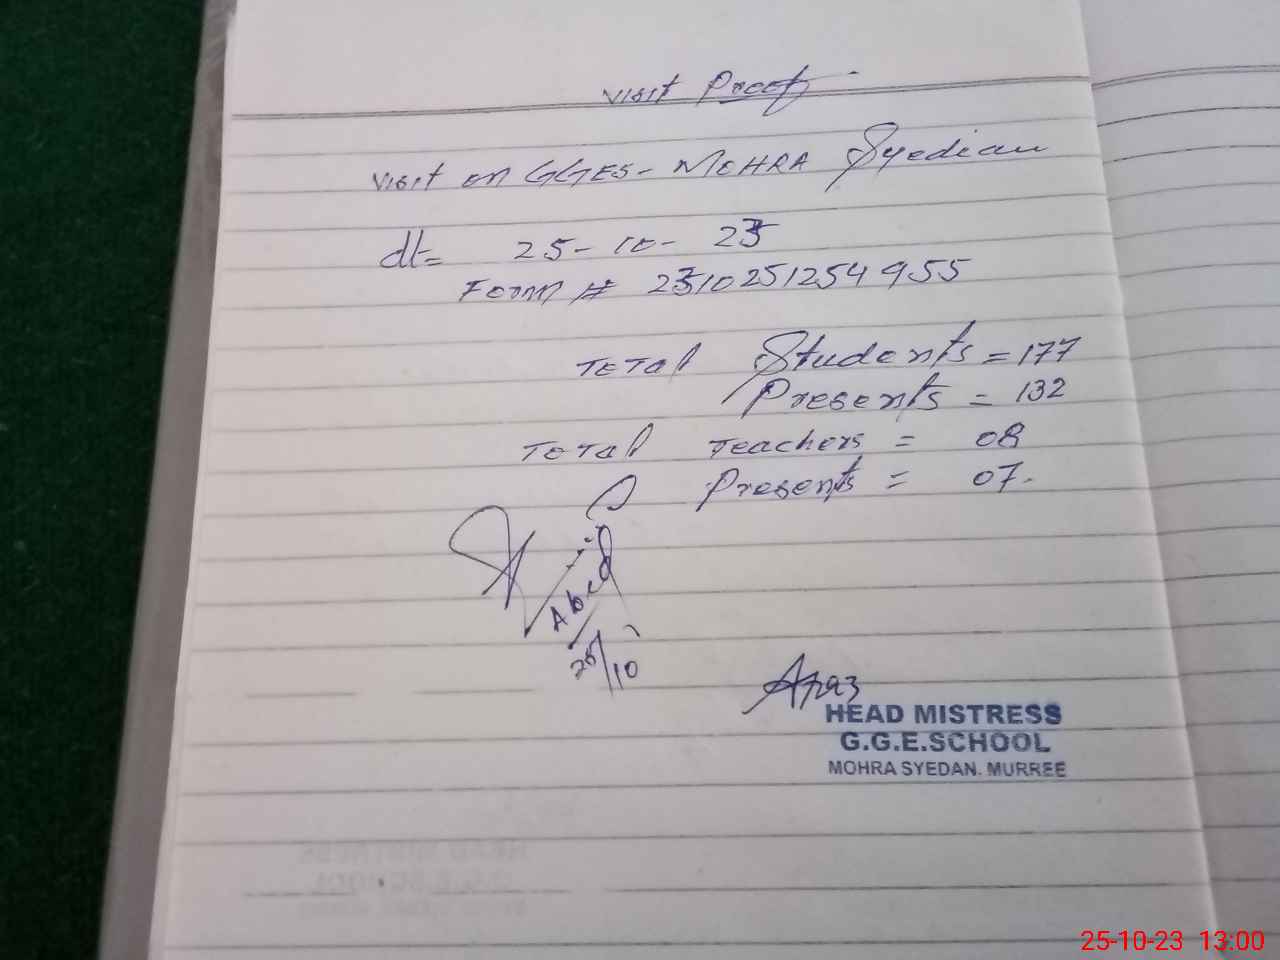 Visit Proof
Visit on GGES- MOHRA Syedian
dt= 25-10-23
Form # 2310251254955
Total Students = 177
Presents = 132
Total Teachers = 08
Presents = 07.
Abid
25/10
HEAD MISTRESS
G.G.E.SCHOOL
MOHRA SYEDAN. MURREE
25-10-23 13:00